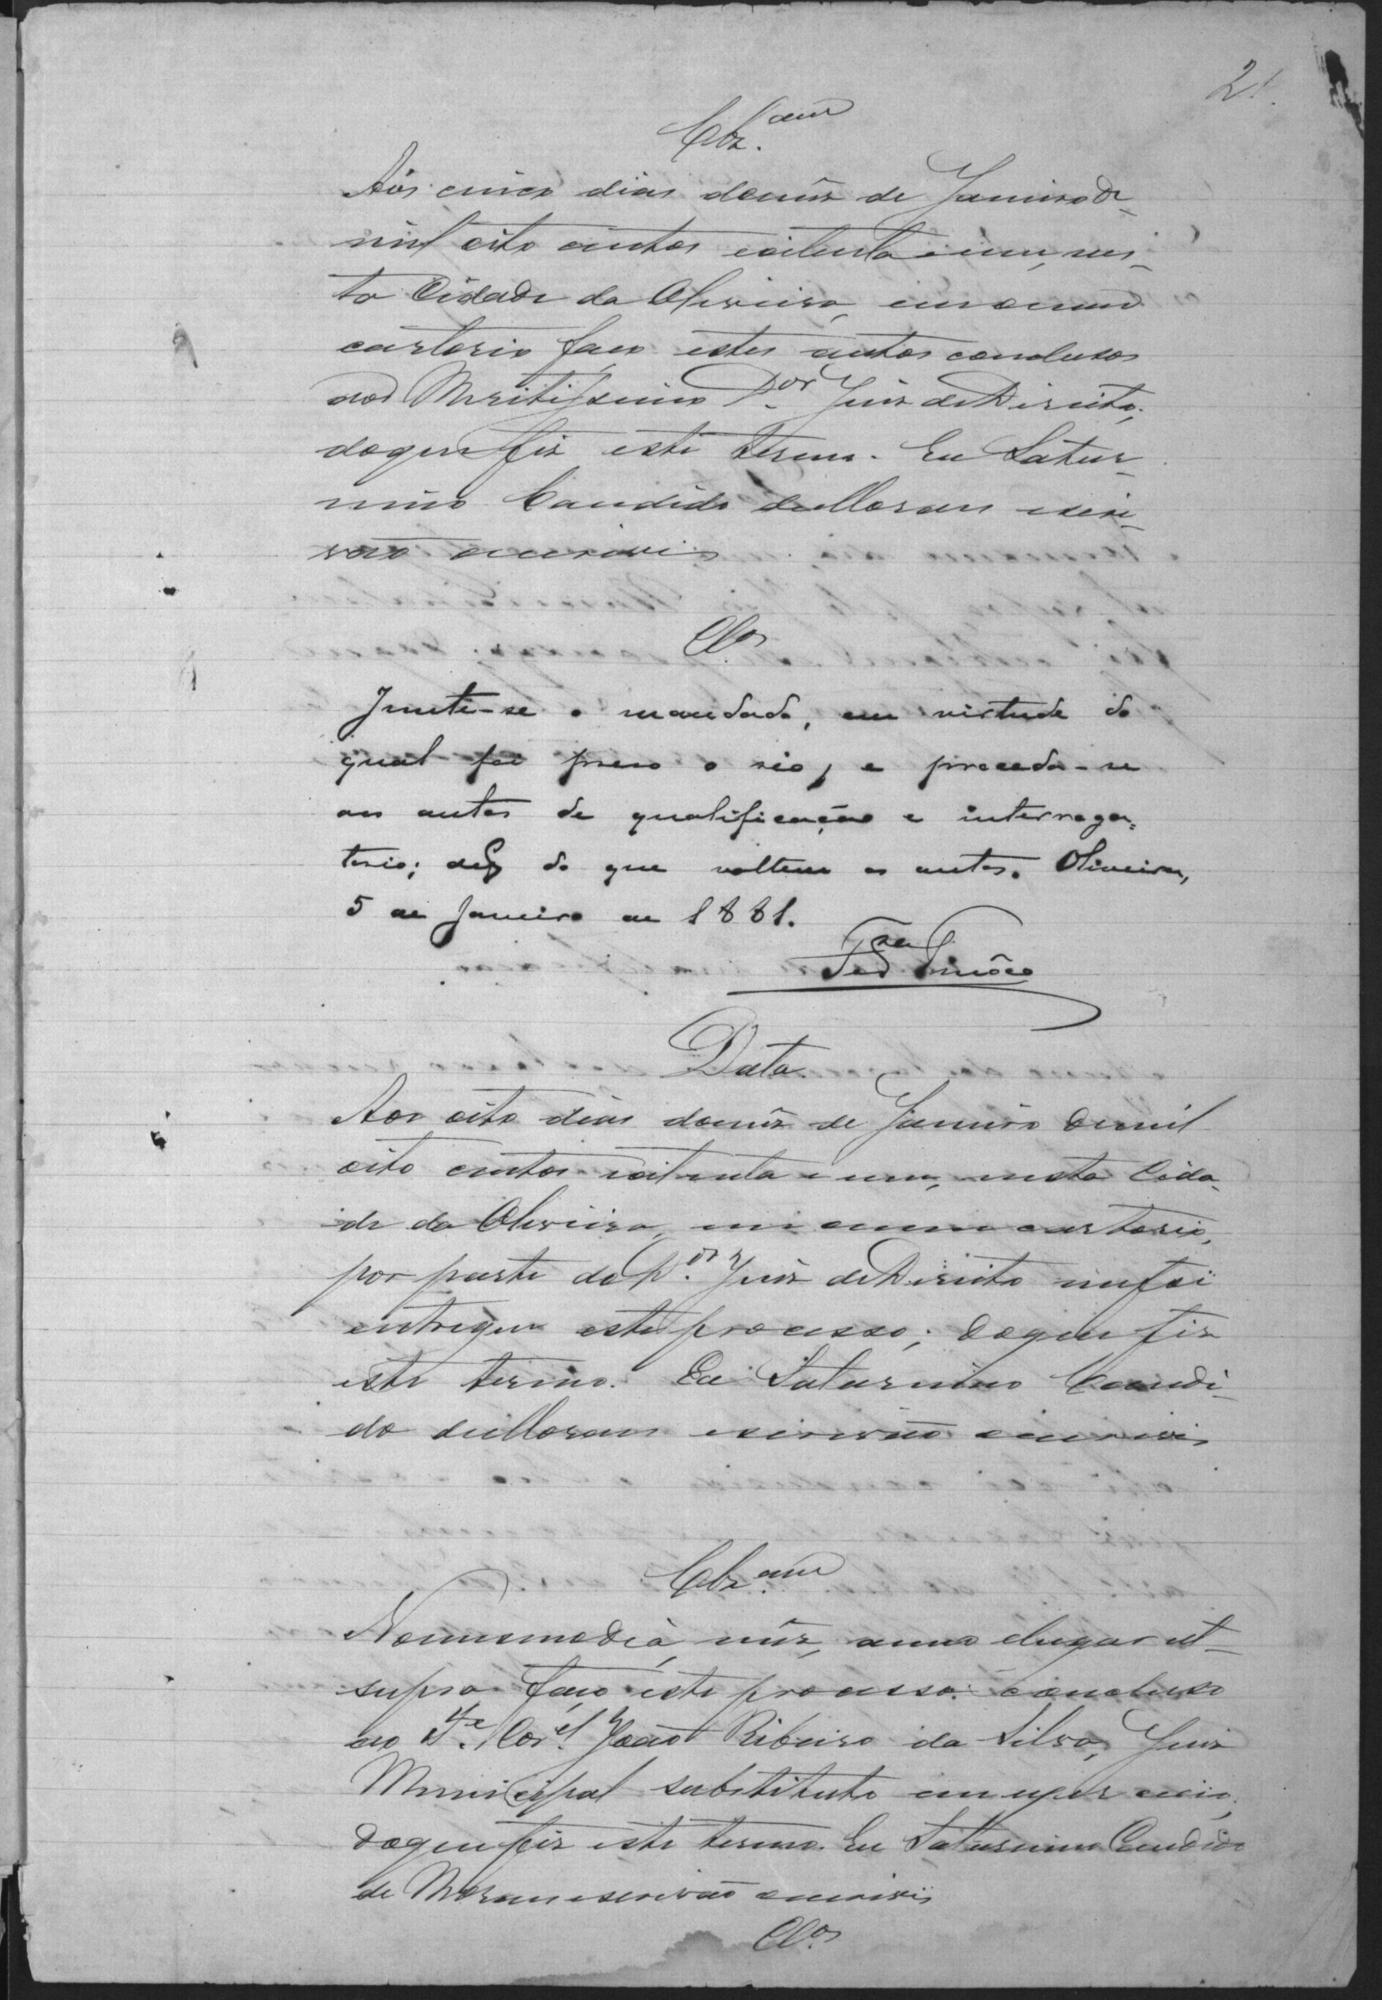 21.
Clz.am
Aos cinco dias do mez de Janeiro de
mil oito centos e oitenta e um, nes-
ta Cidade da Oliveira, em o meu
cartorio faço estes autos conclusos
ao Meritissimo D.or Juiz de Direito;
do que fiz este termo. Eu Satur-
nino Candido de Moraes escri-
vão o escrevi
Cl.os
Junte-se o mandado, em virtude do
qual foi preso o réo, e proceda-se
aos autos de qualificação e interroga-
torio; do que voltem os autos. Oliveira,
5 de Janeiro de 1881.
Data
Aos oito dias do mez de Janeiro de mil
oito centos e oitenta e um, nesta Cida-
de da Oliveira, em o meu cartorio,
por parte do D.or Juiz de Direito me foi
entregue este processo; do que fiz
este termo. Eu Saturnino Candi-
do de Moraes escrivão o escrevi
Clz.am
No mesmo dia, mez, anno e lugar ut-
supra faço este processo concluso
ao T.e Cor.el João Ribeiro da Silva, Juiz
Municipal substituto em exercicio,
do que fiz este termo. Eu Saturnino Candido
de Moraes escrivão o escrevi
Cl.os